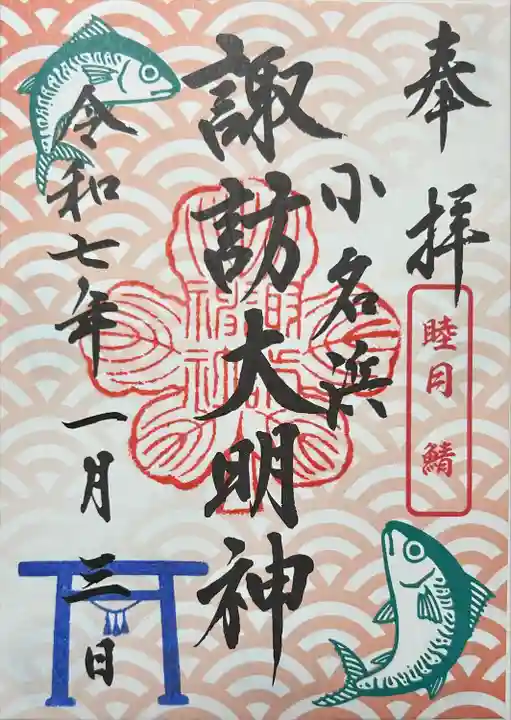 奉拝
睦月 鯖
小名浜
諏訪大明神
令和七年一月三日